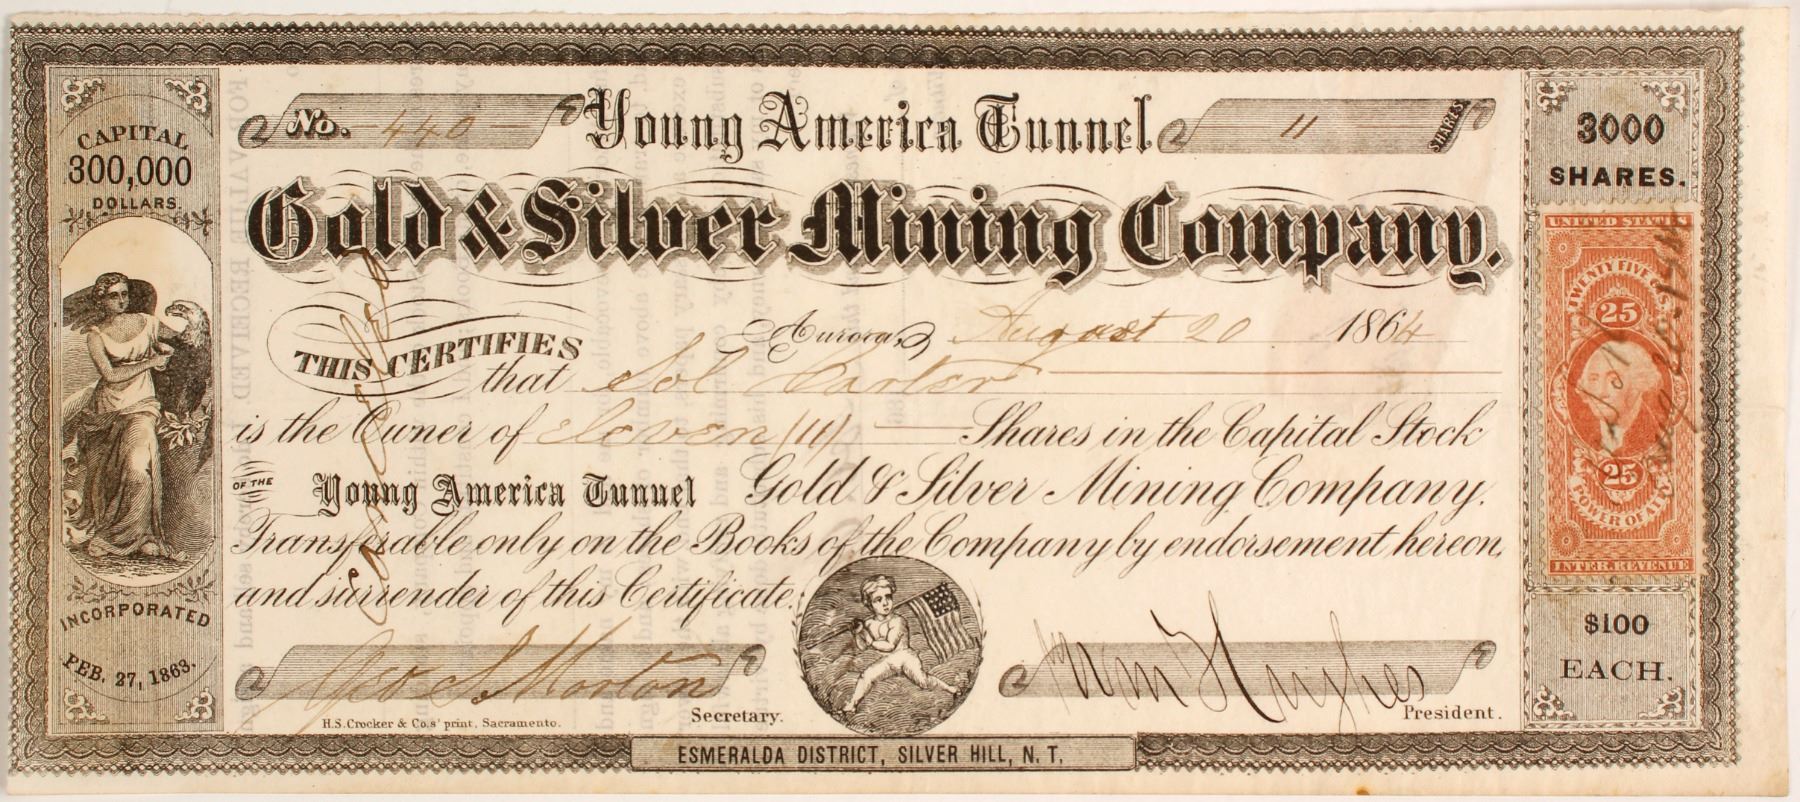 CAPITAL
300,000
DOLLARS.
INCORPORATED
FEB. 27, 1863.
No. 440
Young America Tunnel
11 SHARES
Gold & Silver Mining Company.
Aurora, August 20 1864
THIS CERTIFIES
that Sol Carter
is the Owner of eleven (11) Shares in the Capital Stock
OF THE Young America Tunnel Gold & Silver Mining Company.
Transferable only on the Books of the Company by endorsement hereon,
and surrender of this Certificate.
Cancelled
Geo S Morton
Secretary.
Wm Hughes
President.
H.S. Crocker & Co.s' print, Sacramento.
ESMERALDA DISTRICT, SILVER HILL, N. T.
3000
SHARES.
UNITED STATES
TWENTY FIVE CTS
25
25
POWER OF ATTY
INTER. REVENUE
$100
EACH.